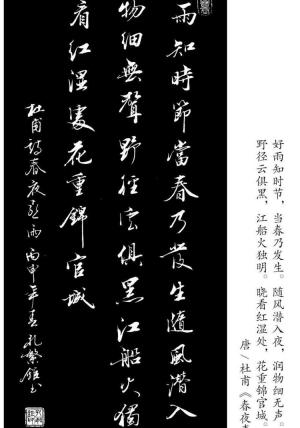 好雨知时节，当春乃发生。随风潜入夜，润物细无声。
野径云俱黑，江船火独明。晓看红湿处，花重锦官城。
唐/杜甫《春夜
雨知時節當春乃發生隨風潛入
物細無聲野徑云俱黑江船火獨
看紅濕處花重錦官城
杜甫詩春夜喜雨丙申年春孔繁